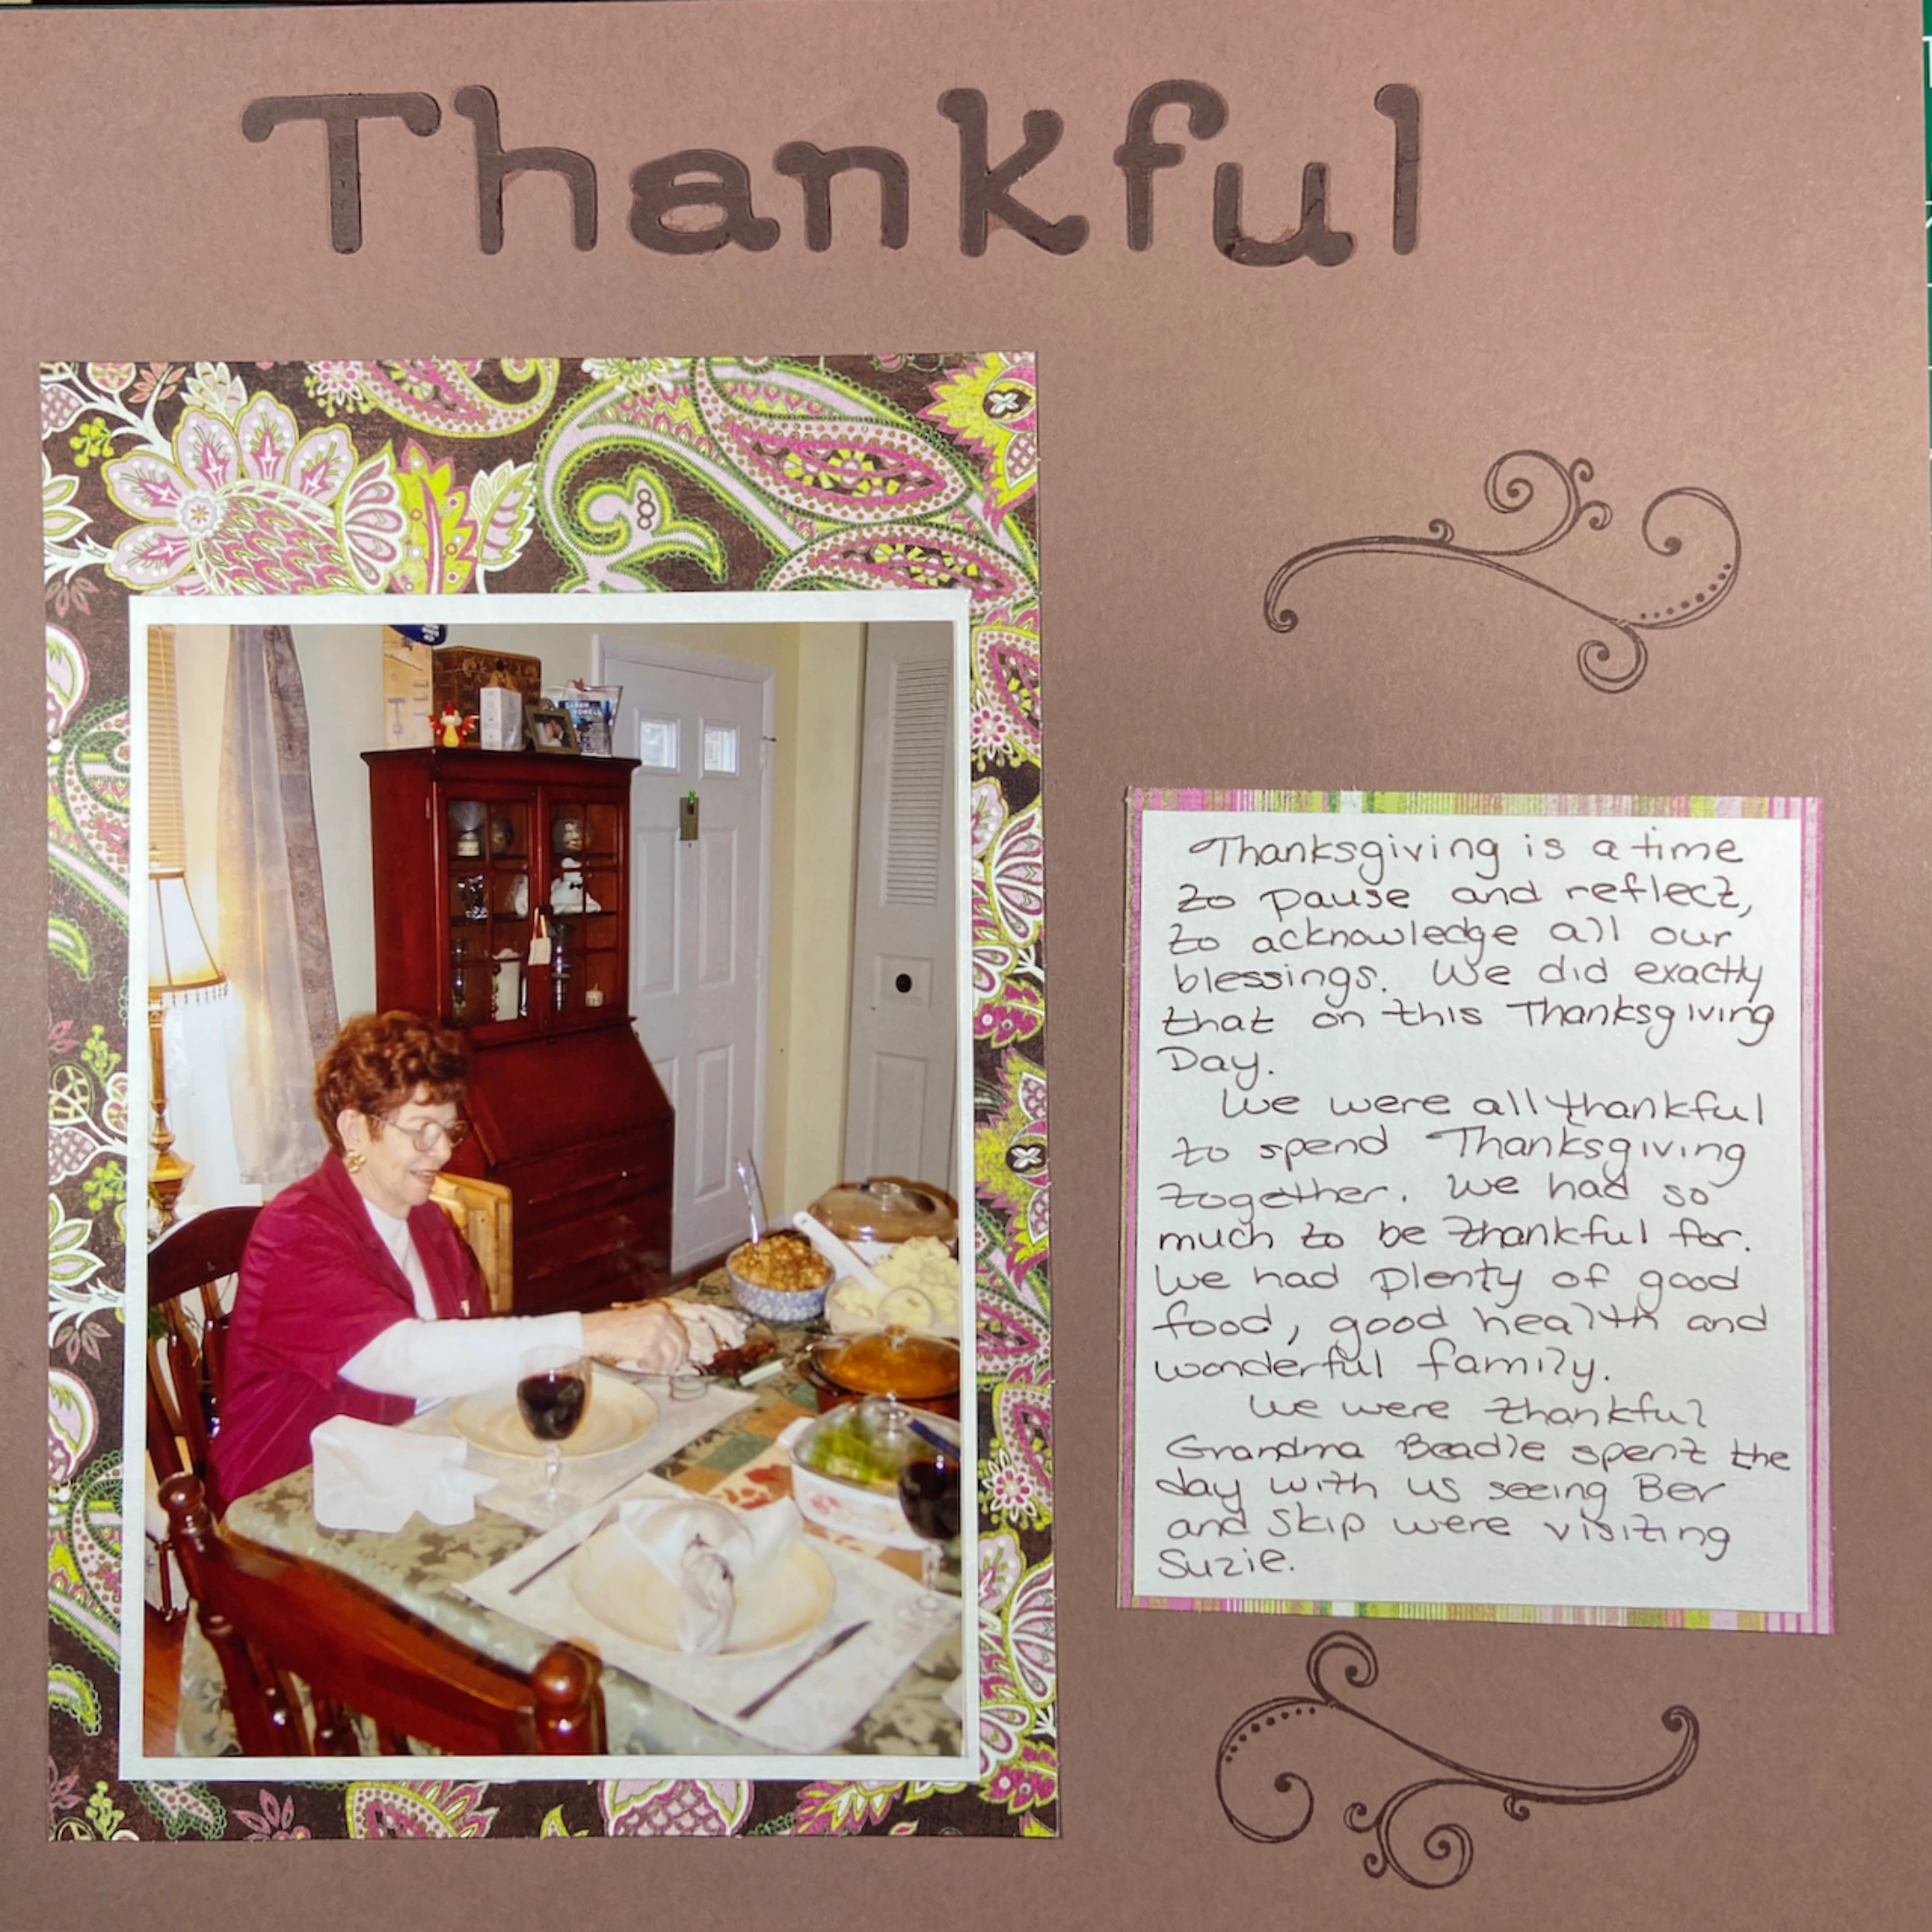 Thankful
Thanksgiving is a time
to pause and reflect,
to acknowledge all our
blessings. We did exactly
that on this Thanksgiving
Day.
We were all thankful
to spend Thanksgiving
together. We had so
much to be thankful for.
We had plenty of good
food, good health and
wonderful family.
We were thankful
Grandma Beadle spent the
day with us seeing Bev
and Skip were visiting
Suzie.